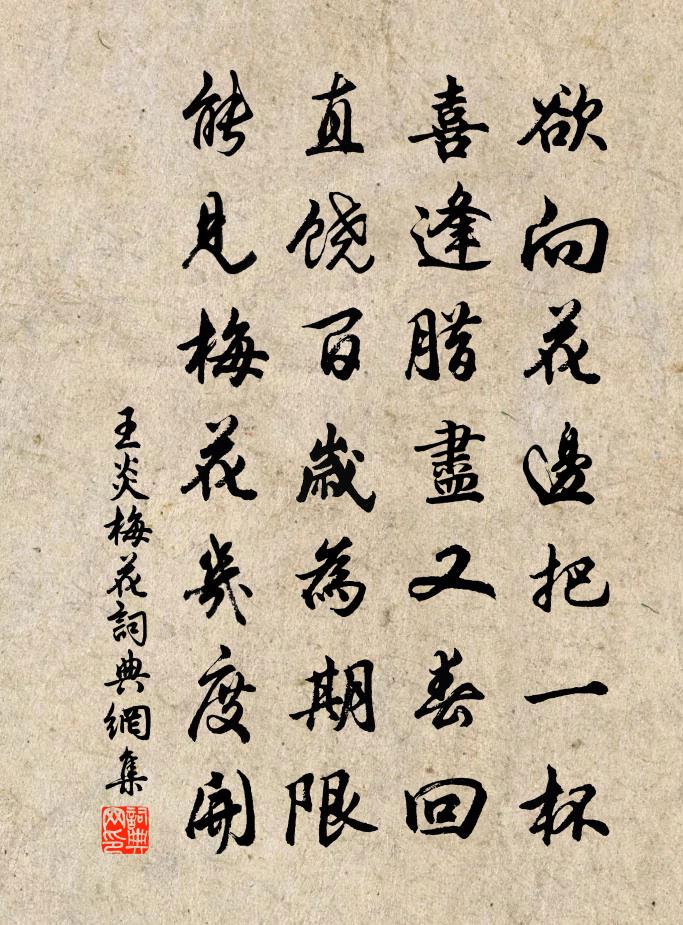 欲向花邊把一杯
喜逢腊盡又春回
直饶百歲為期限
能見梅花幾度開
王炎梅花詞典網集
詞典網印